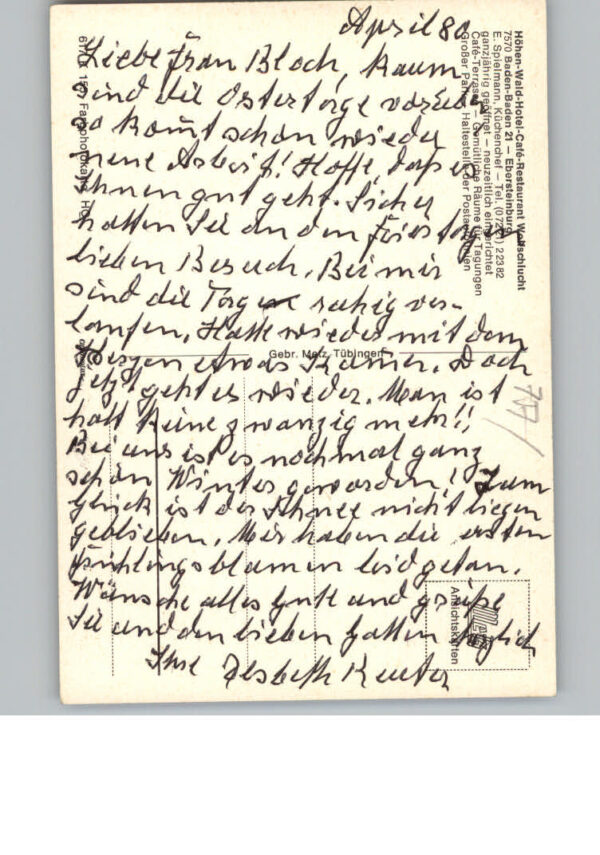 April 80
Liebe Frau Bloch, kaum
sind die Ostertage vorüber
so kommt schon wieder
neue Arbeit! Hoffe, daß es
Ihnen gut geht. Sicher
hatten Sie an den Feiertagen
lieben Besuch. Bei mir
sind die Tage ruhig ver-
laufen. Hatte wieder mit dem
Herzen etwas Kummer. Doch
jetzt geht es wieder. Man ist
halt keine zwanzig mehr!!
Bei uns ist es nochmal ganz
schön Winter geworden! Zum
Glück ist der Schnee nicht liegen
geblieben. Mir haben die ersten
Frühlingsblumen leid getan.
Wünsche alles Gute und grüße
Sie und den lieben Gatten herzlich
Ihre Elsbeth
Höhen-Wald-Hotel-Café-Restaurant Wolfschlucht
7570 Baden-Baden 21 – Ebersteinburg
E. Spielmann, Küchenchef – Tel. (07221) 22382
ganzjährig geöffnet – neuzeitlich eingerichtet
Café-Terrasse – Gemütliche Räume für Tagungen
Großer Parkplatz Haltestelle der Postautolinien
Gebr. Metz, Tübingen
Ansichtskarten
METZ